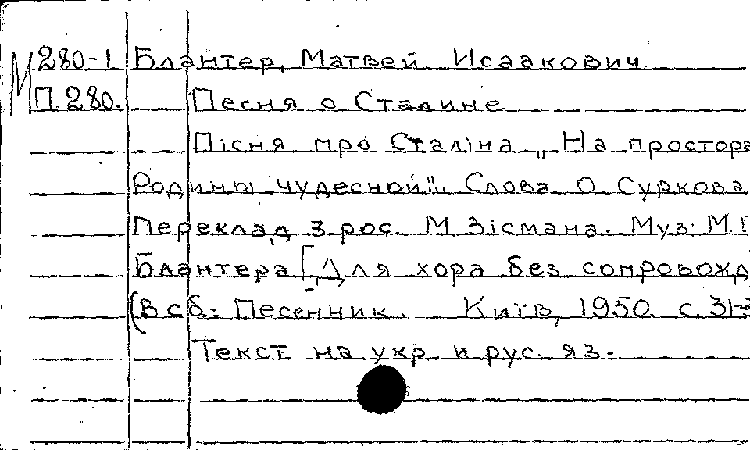 М 280-1 Блантер, Матвей Исаакович
П.280. Песня о Сталине
Пісня про Сталіна „На простора
Родины чудесной". Слова О. Суркова
Переклад з рос. М. Зісмана. Муз. М.
Блантера [Для хора без сопровожд
(В сб: Песенник. Київ, 1950 с. 31-
Текст на укр. и рус. яз.